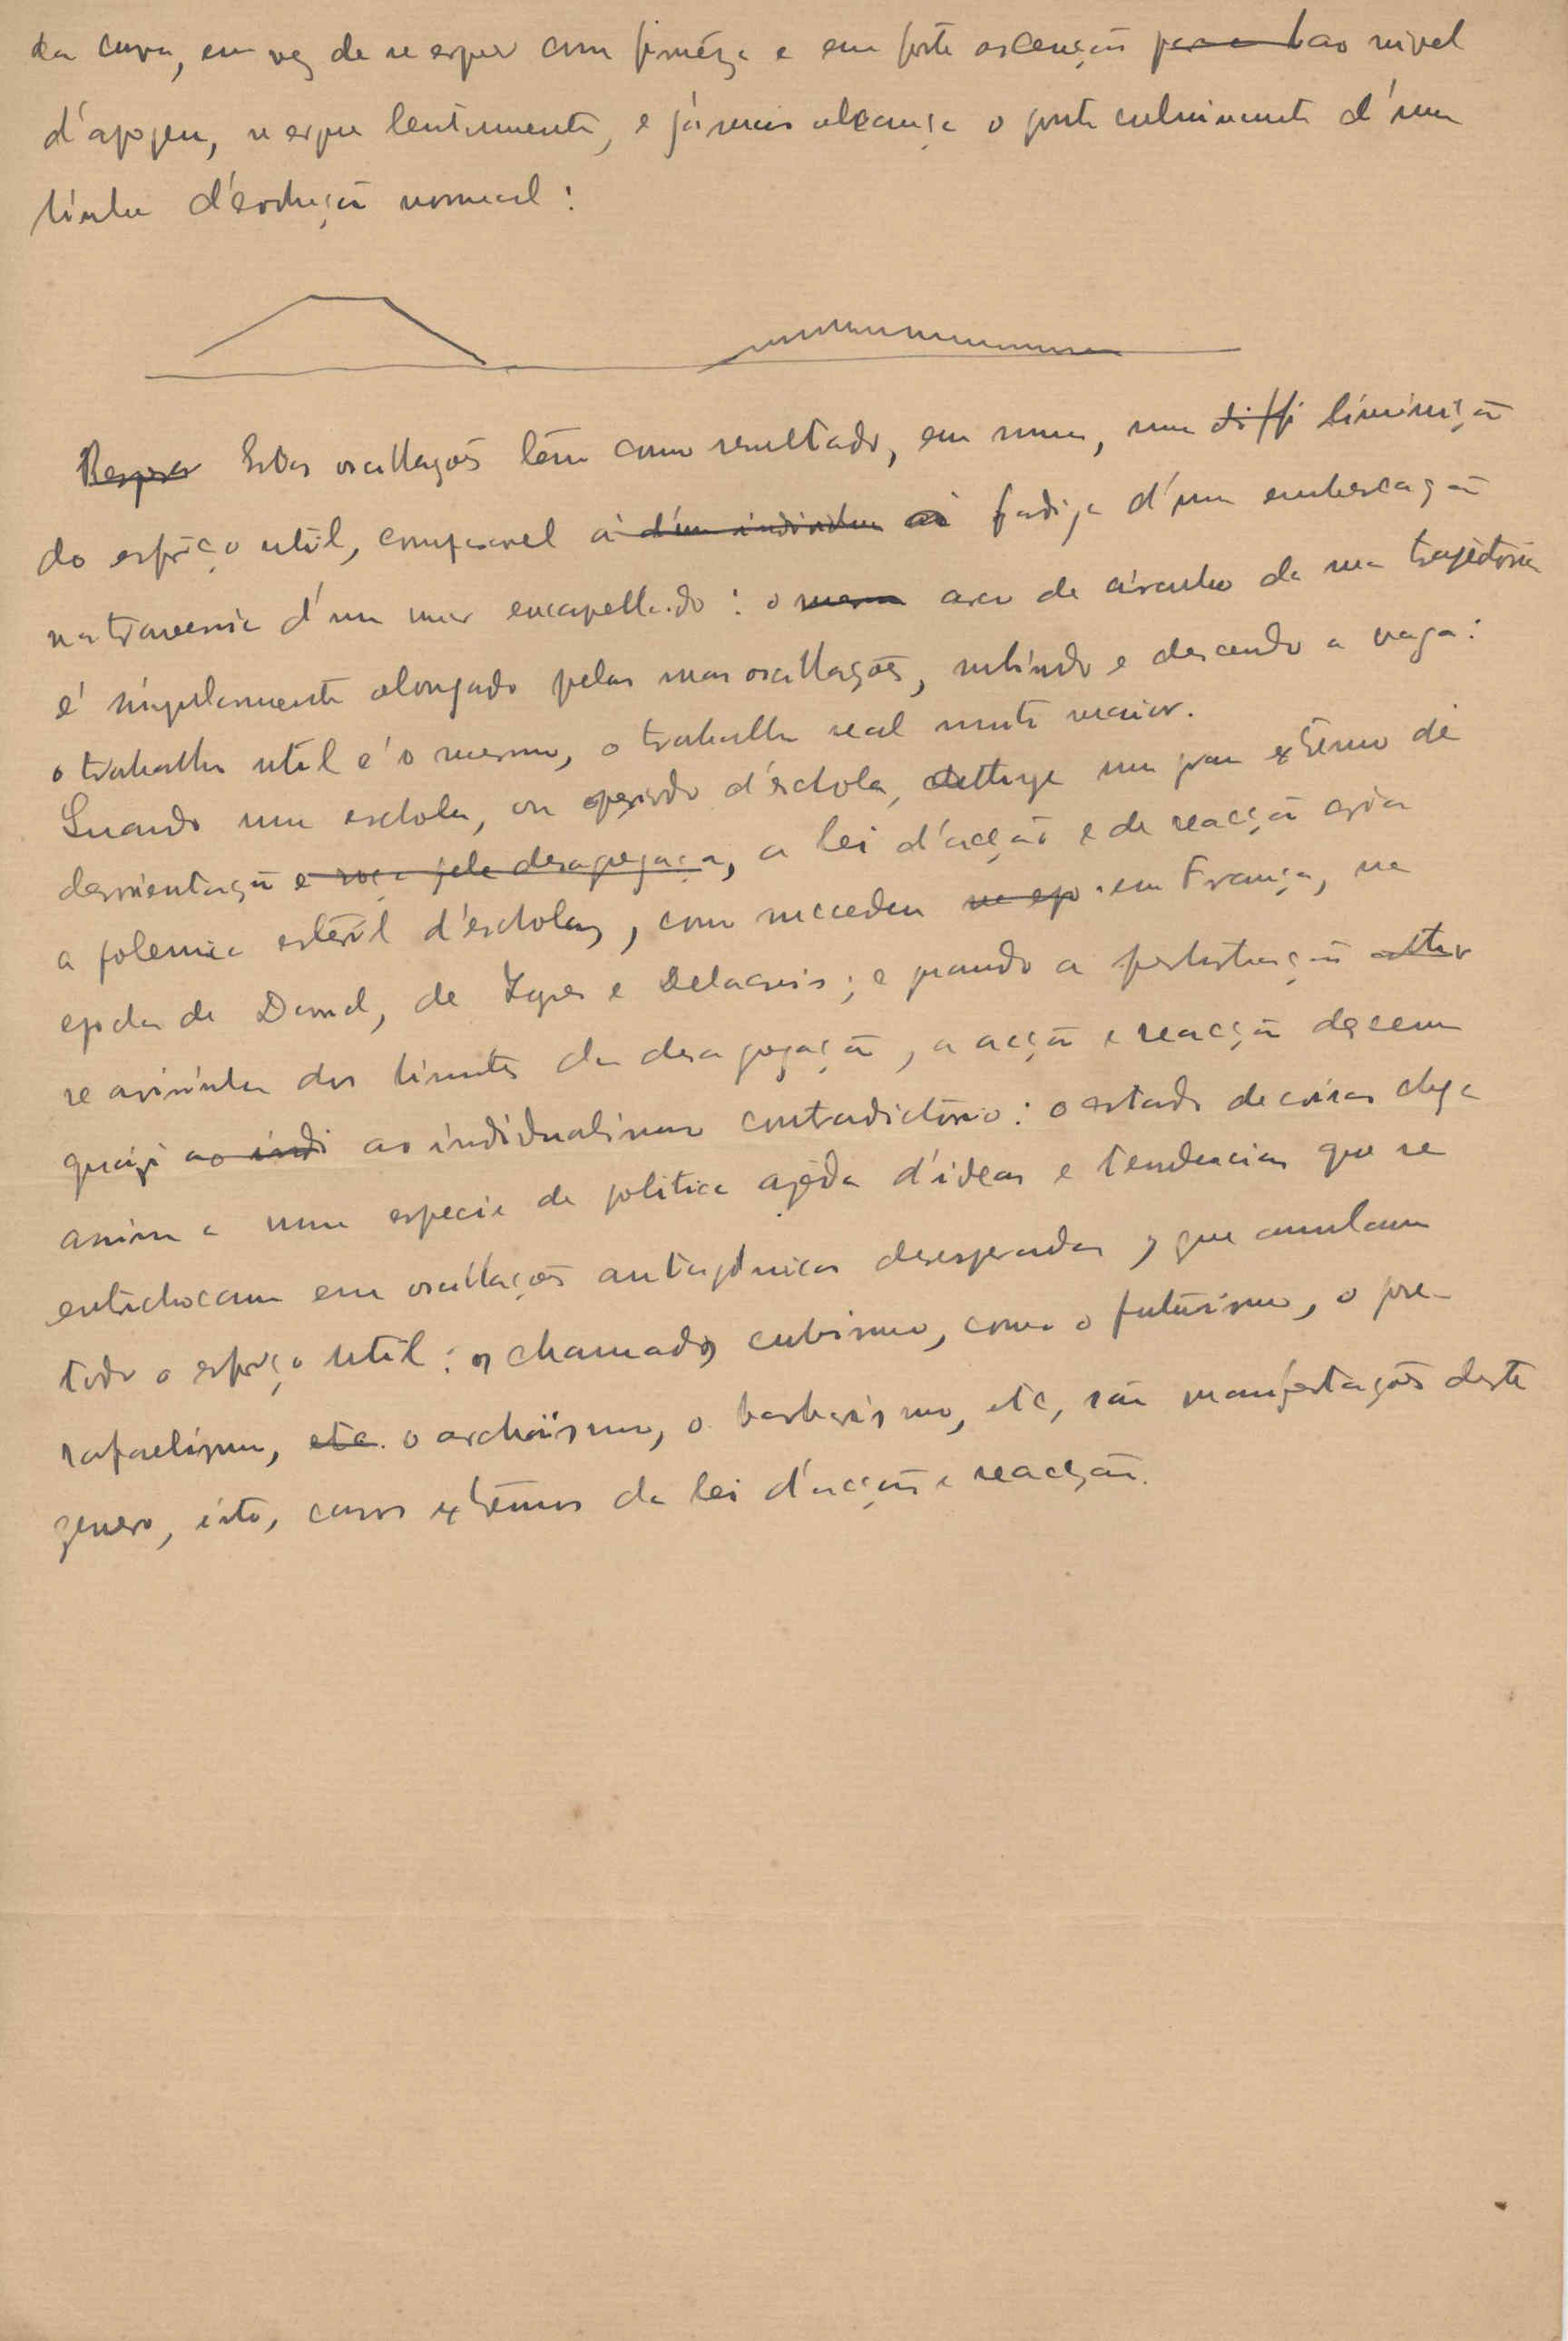 da curva, em vez de se erguer com firmêza e em forte ascenção para o ao nivel
d'apogeu, se ergue lentamente, e jámais alcança o ponto culminante d'uma
linha d'evolução normal:
Estas oscillações têm como resultado, em suma, uma diffi diminuição
do esforço util, comparavel á d'um individuo á fadiga d'uma embarcação
na travessia d'um mar encapellado: o mesmo arco de circulo da sua trajectoria
é singularmente alongado pelas suas oscillações, subindo e descendo a vaga:
o trabalho util é o mesmo, o trabalho real muito maior.
Quando uma eschola, ou periodo d'eschola, attinge um grau extremo de
desorientação e roça pela desagregação, a lei d'acção e de reacção cria
a polemica esteril d'escholas, como succedeu na ep em França, na
epocha de David, de Ingres e Delacroix; e quando a perturbação
se avisinha dos limites da desagregação, a acção e reacção descem
quazi ao indi ao individualismo contradictorio: o estado de coisas chega
assim a uma especie de politica d'ideas e tendencias que se
entrechocam em oscillações antagónicas desesperadas, que annulam
todo o esforço util: os chamados cubismo, como o futurismo, o pre-
rafaelismo, etc. o archaïsmo, o barbarismo, etc, são manifestações deste
genero, isto, casos extremos da lei d'acção e reacção.